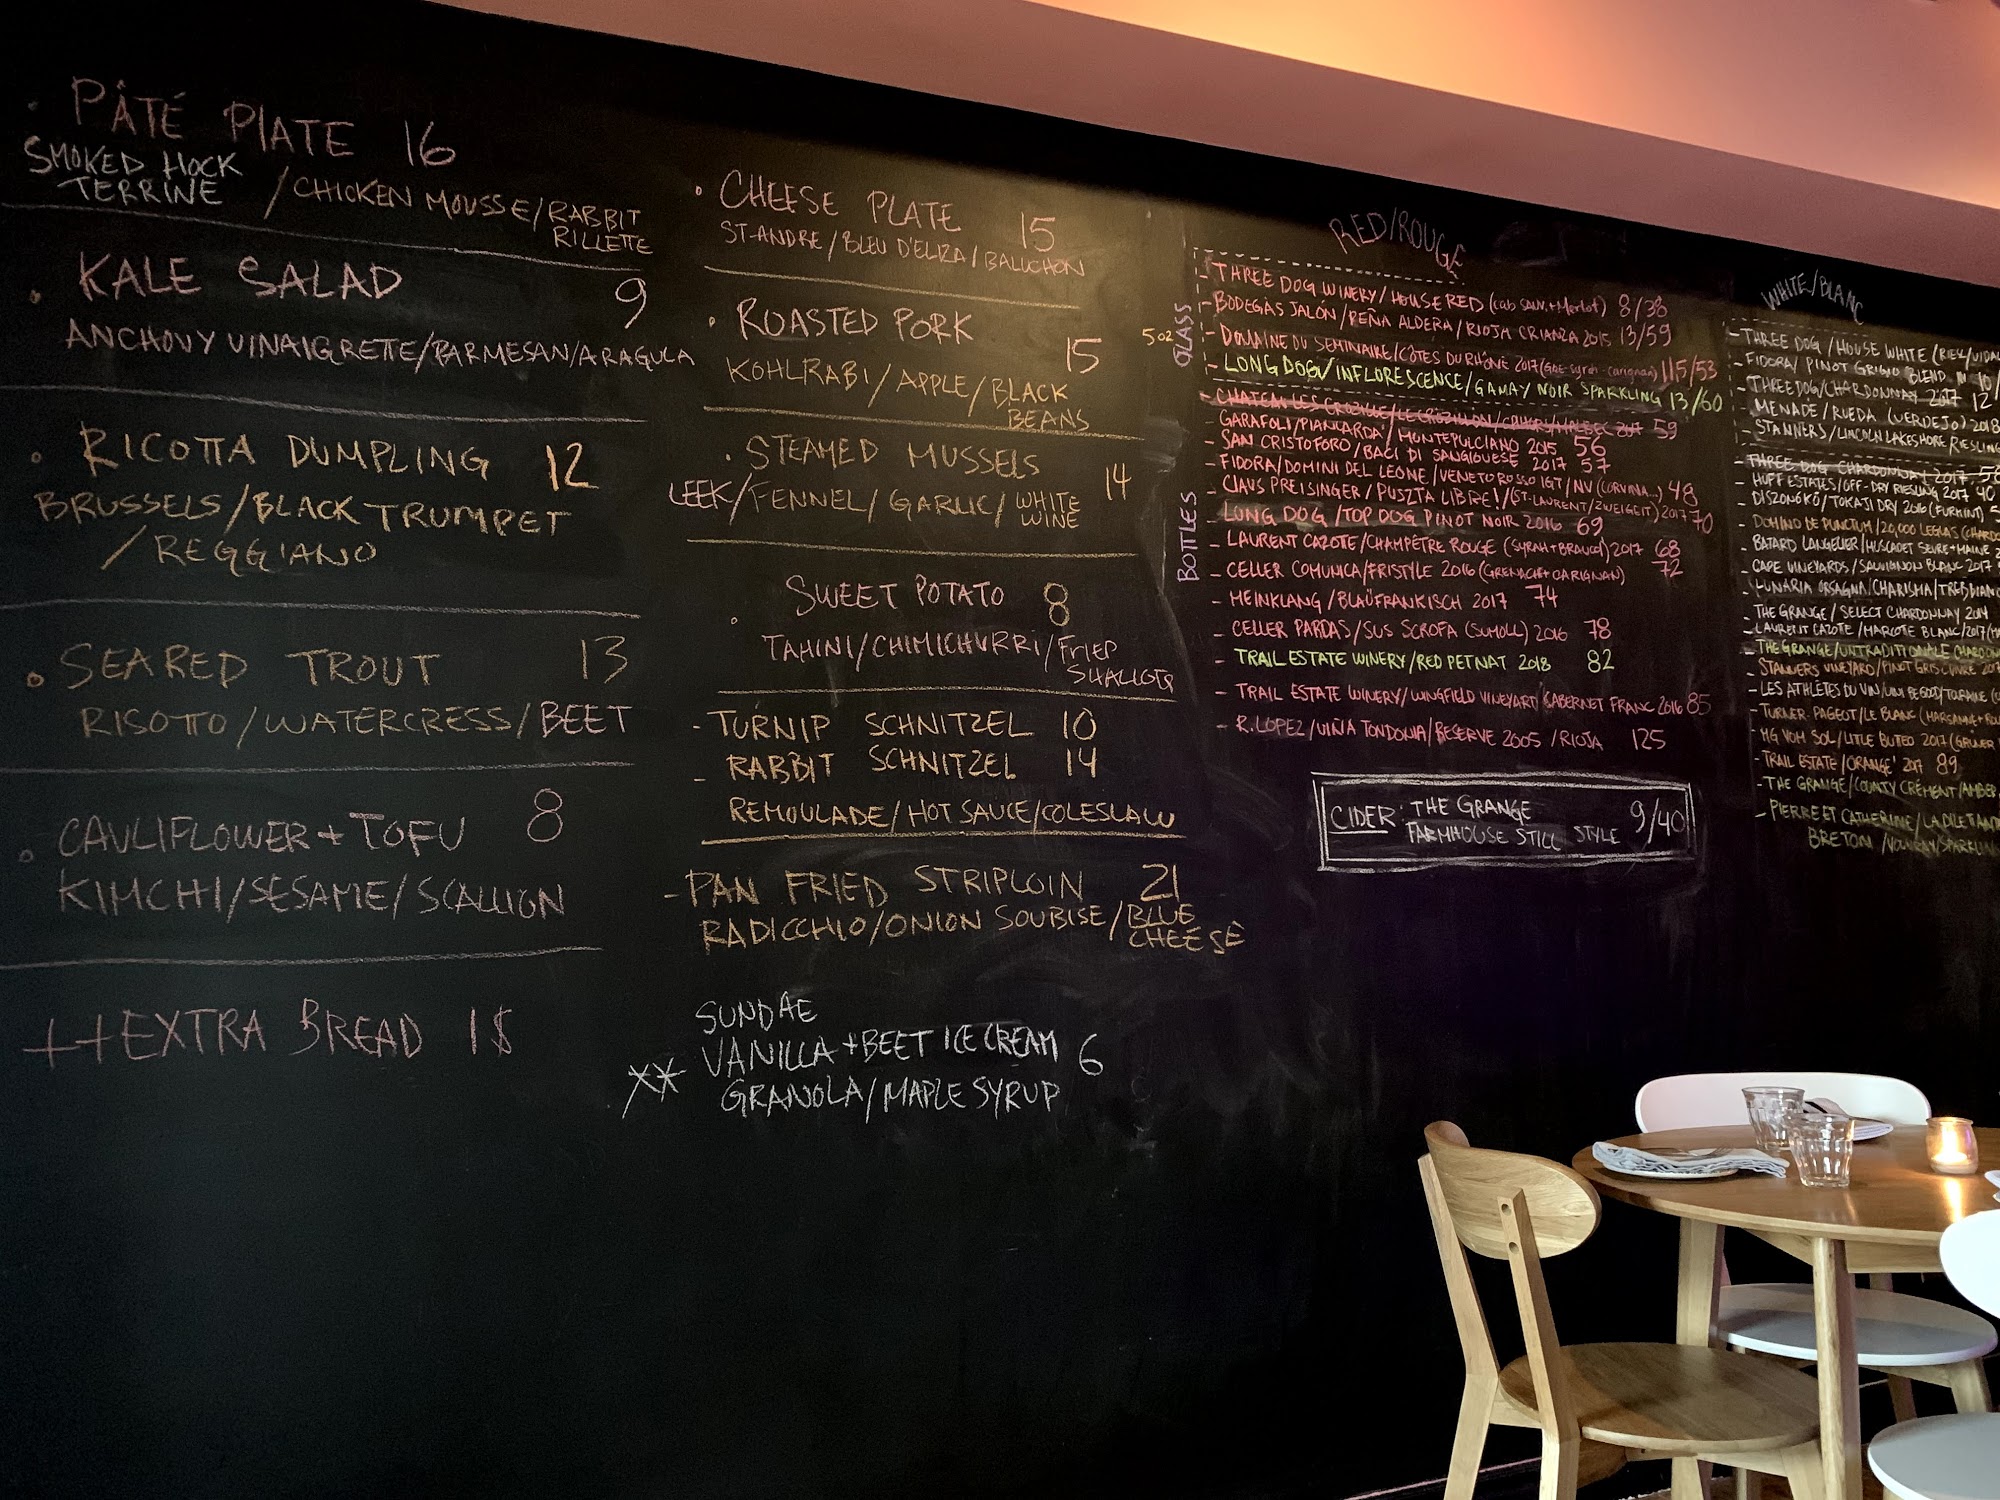 PÂTÉ PLATE 16
SMOKED HOCK
TERRINE / CHICKEN MOUSSE / RABBIT
RILLETTE
KALE SALAD 9
ANCHOVY VINAIGRETTE/PARMESAN/ARAGULA
RICOTTA DUMPLING 12
BRUSSELS/BLACK TRUMPET
/REGGIANO
SEARED TROUT 13
RISOTTO/WATERCRESS/BEET
CAULIFLOWER + TOFU 8
KIMCHI/SESAME/SCALLION
++EXTRA BREAD 1$
CHEESE PLATE 15
ST-ANDRE/BLEU D'ELIZA/BALUCHON
ROASTED PORK 15
KOHLRABI/APPLE/BLACK
BEANS
STEAMED MUSSELS 14
LEEK/FENNEL/GARLIC/WHITE
WINE
SWEET POTATO 8
TAHINI/CHIMICHURRI/FRIED
SHALLOTS
- TURNIP SCHNITZEL 10
- RABBIT SCHNITZEL 14
REMOULADE/HOT SAUCE/COLESLAW
- PAN FRIED STRIPLOIN 21
RADICCHIO/ONION SOUBISE/BLUE
CHEESE
SUNDAE
** VANILLA + BEET ICE CREAM 6
GRANOLA/MAPLE SYRUP
RED/ROUGE
5 OZ GLASS
- THREE DOG WINERY/HOUSE RED (cab sauv. + Merlot) 8/38
- BODEGAS JALÓN/PEÑA ALDERA/RIOJA CRIANZA 2015 13/59
- DOMAINE DU SEMINAIRE/CÔTES DU RHÔNE 2017 11.5/53
- LONG DOG/INFLORESCENCE/GAMAY NOIR SPARKLING 13/60
BOTTLES
59
- GARAFOLI/PIANCARDA/MONTEPULCIANO 2015 56
- SAN CRISTOFORO/BACI DI SANGIOVESE 2017 57
- FIDORA/DOMINI DEL LEONE/VENETO ROSSO IGT/NV (CORVINA...) 48
- CLAUS PREISINGER/PUSZTA LIBRE!/(ST-LAURENT/ZWEIGELT) 2017 70
- LONG DOG/TOP DOG PINOT NOIR 2016 69
- LAURENT CAZOTE/CHAMPÊTRE ROUGE (SYRAH + BRAUCOL) 2017 68
- CELLER COMUNICA/FRISTYLE 2016 (GRENACHE + CARIGNAN) 72
- MEINKLANG/BLAÜFRANKISCH 2017 74
- CELLER PARDAS/SUS SCROFA (SUMOLL) 2016 78
- TRAIL ESTATE WINERY/RED PETNAT 2018 82
- TRAIL ESTATE WINERY/WINGFIELD VINEYARD/CABERNET FRANC 2016 85
- R. LOPEZ/VIÑA TONDONIA/RESERVE 2005/RIOJA 125
CIDER: THE GRANGE
FARMHOUSE STILL STYLE 9/40
WHITE/BLANC
- THREE DOG/HOUSE WHITE (RIESL/VIDAL
- FIDORA/PINOT GRIGIO BLEND 10/
- THREE DOG/CHARDONNAY 2017 12
- MENADE/RUEDA (VERDEJO) 2018
- STANNERS/LINCOLN LAKESHORE RIESLING
- THREE DOG CHARDONNAY 2017
- HUFF ESTATES/OFF-DRY RIESLING 2017 40
- DISZNÓKŐ/TOKAJI DRY 2016 (FURMINT)
- DOMINIO DE PUNCTUM/20,000 LEGUAS
- BATARD LANGELIER/MUSCADET SEVRE + MAINE
- CAPE VINEYARDS/SAUVIGNON BLANC 2017
- LUNARIA ORSAGNA/CHARISMA/TREBBIANO
- THE GRANGE/SELECT CHARDONNAY 2014
- LAURENT CAZOTE/MARCOTE BLANC/2017
- THE GRANGE/UNTRADITIONALE CHARDON
- STANNERS VINEYARD/PINOT GRIS CUIVRE
- LES ATHLÈTES DU VIN/VINI BE GOOD/TOURAINE
- TURNER PAGEOT/LE BLANC
- MG VOM SOL/LITLE BUTEO 2017 (GRUNER
- TRAIL ESTATE/'ORANGE' 2017 89
- THE GRANGE/COUNTY CREMENT/AMBER
- PIERRE ET CATHERINE/LA DILETTANTE
BRETON/VOUVRAY/SPARKLING